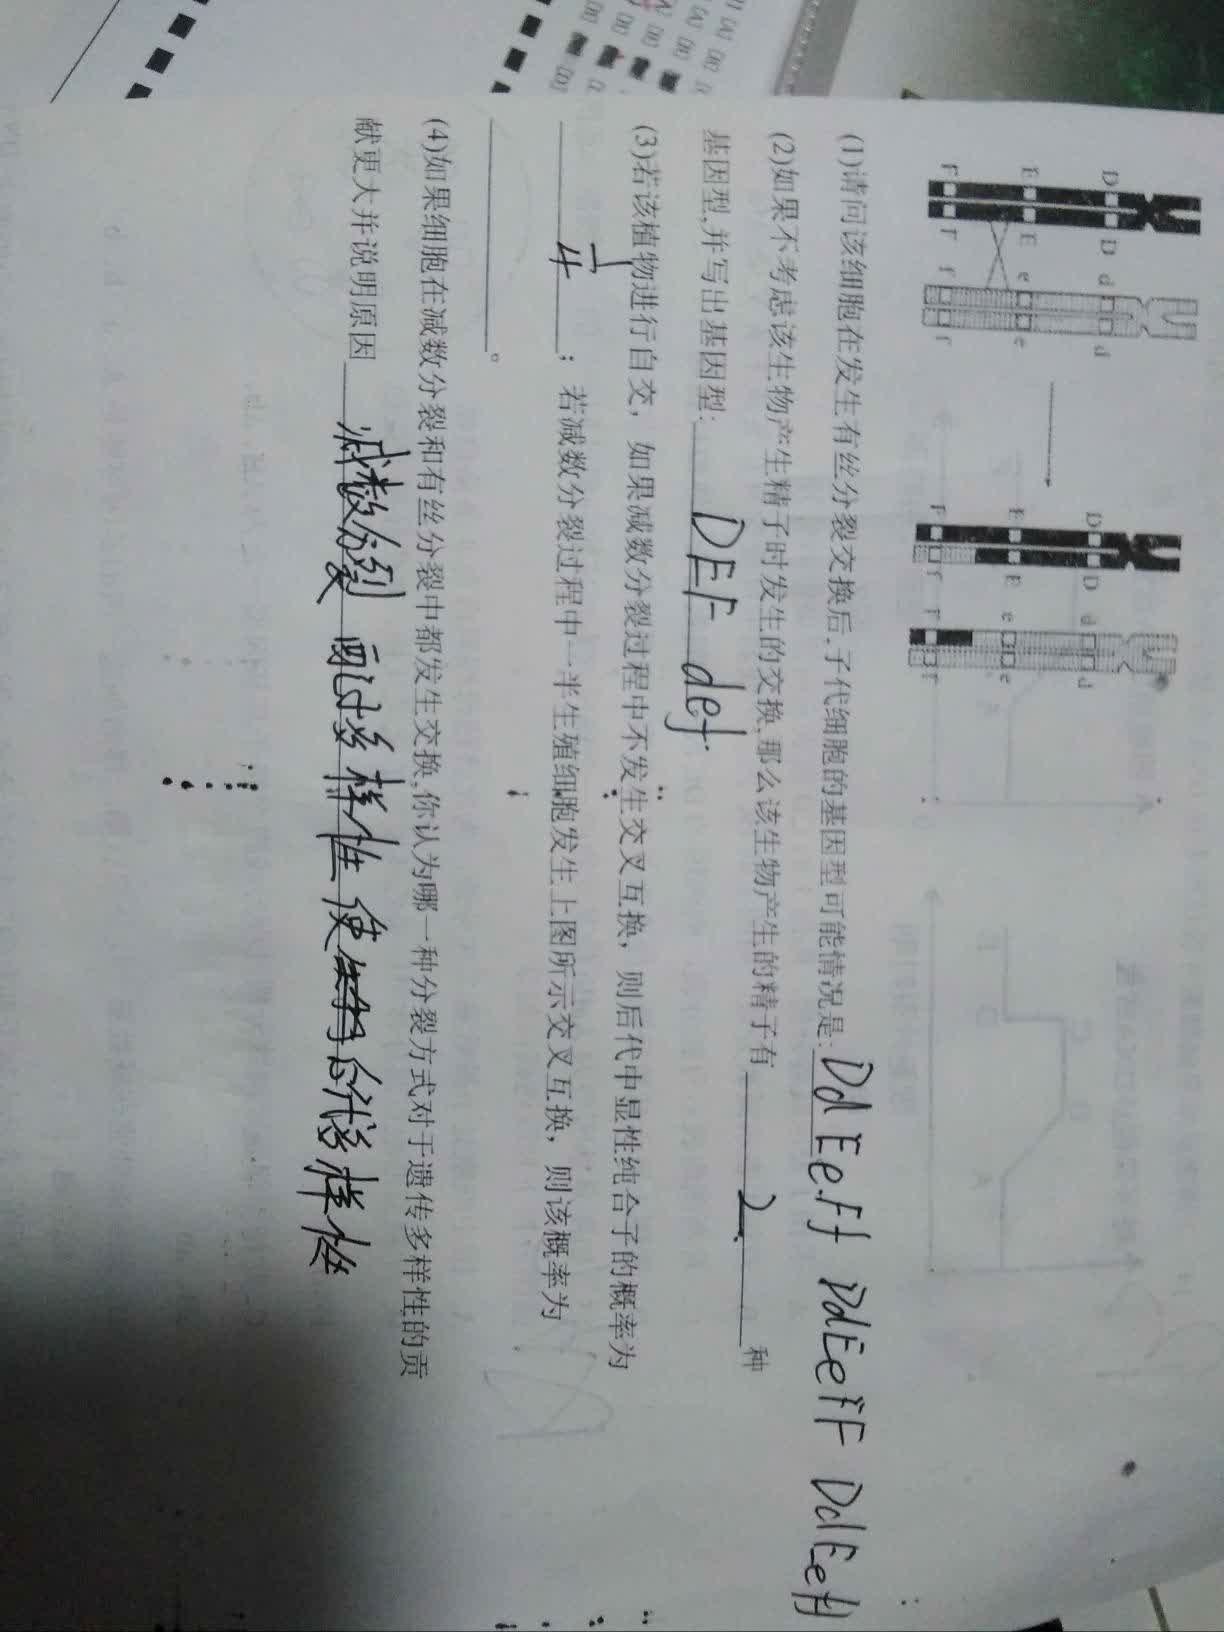 D D d d
E E e e
F F f f
D D d d
E E e e
F f F f
(1)请问该细胞在发生有丝分裂交换后,子代细胞的基因型可能情况是: DdEeFf DdEeFF DdEeff
(2)如果不考虑该生物产生精子时发生的交换,那么该生物产生的精子有 2 种
基因型,并写出基因型: DEF def
(3)若该植物进行自交，如果减数分裂过程中不发生交叉互换，则后代中显性纯合子的概率为
1/4 ；若减数分裂过程中一半生殖细胞发生上图所示交叉互换，则该概率为
。
(4)如果细胞在减数分裂和有丝分裂中都发生交换,你认为哪一种分裂方式对于遗传多样性的贡
献更大并说明原因 减数分裂 多样性 使 多样化